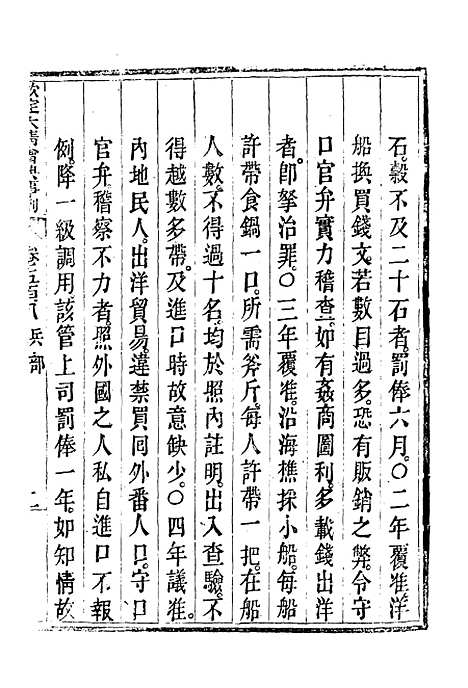 石穀不及二十石者。罰俸六月。○二年覆准。洋
船換買錢文。若數目過多。恐有販銷之弊。令守
口官弁實力稽查。如有姦商圖利。多載錢出洋
者。卽拏治罪。○三年覆准。沿海樵採小船。每船
許帶食鍋一口。所需斧斤。每人許帶一把。在船
人數。不得過十名。均於照內註明。出入查驗。不
得越數多帶。及進口時故意缺少。○四年議准。
內地民人。出洋貿易。違禁買囘外番人口。守口
官弁。稽察不力者。照外國之人私自進口不報
例。降一級調用。該管上司罰俸一年。如知情故
欽定大清會典事例 卷五百八 兵部